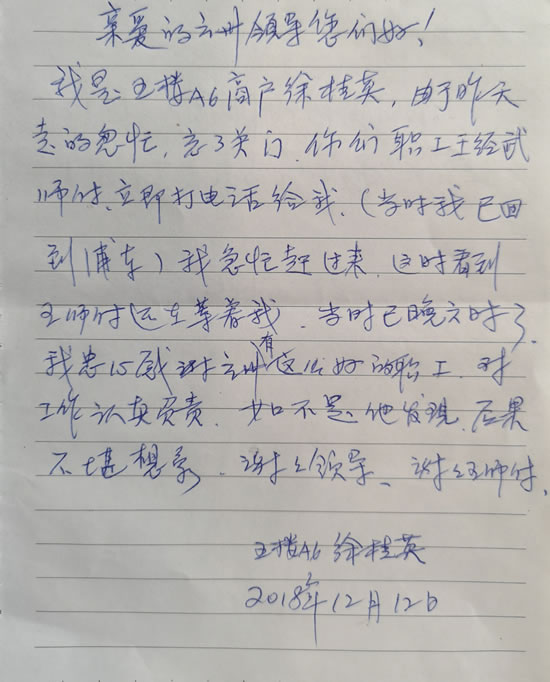 亲爱的立州领导您们好!
我是五楼A6商户徐桂英,由于昨天
走的忽忙,忘了关门.你们职工王经武
师付,立即打电话给我.(当时我已回
到浦东)我急忙赶过来,这时看到
王师付(还在等着我).当时已晚六时了.
我忠心感谢立州有这么好的职工.对
工作认真负责.如不是他发现.后果
不堪想象.谢谢领导、谢谢王师付.
五楼A6 徐桂英
2018年12月12日